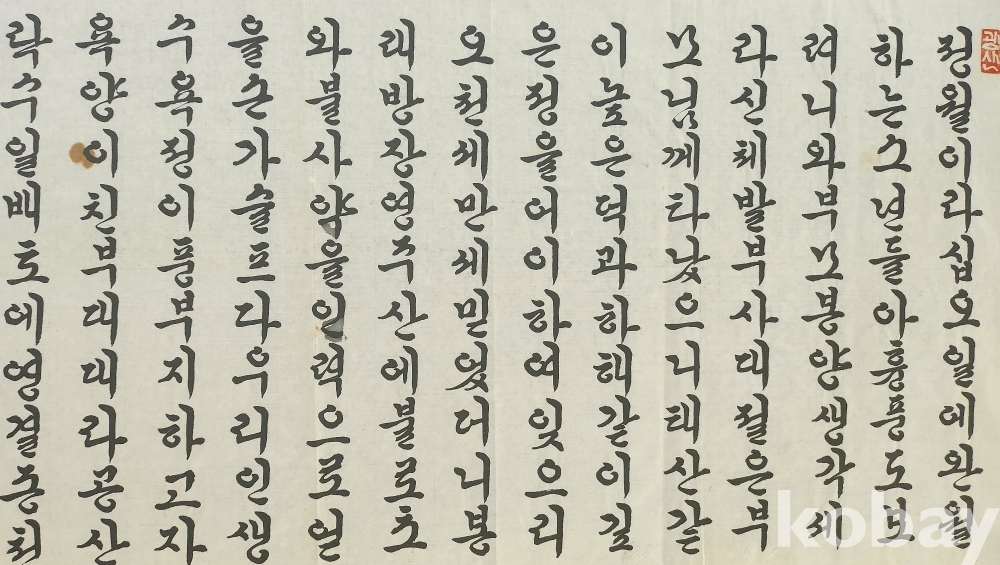 정월이라십오일에완월
하는소년들아흉풍도보
려니와부모봉양생각세
라신체발부사대절은부
모님께타낫으니태산같
이높은덕과하해같이깊
은정을어이하여잊으리
오천세만세믿었더니봉
래방장영주산에불로초
와불사약을인력으로얻
을손가슬프다우리인생
수욕정이풍부지하고자
욕양이친부대대라공산
락수일배토에영결종천
kobay